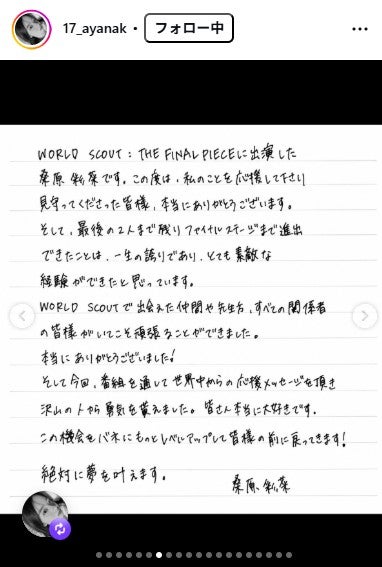 17_ayanak • フォロー中
WORLD SCOUT : THE FINAL PIECEに出演した
桑原彩菜です。この度は、私のことを応援して下さり
見守ってくださった皆様、本当にありがとうございます。
そして、最後の2人まで残りファイナルステージまで進出
できたことは、一生の誇りであり、とても素敵な
経験ができたと思っています。
WORLD SCOUTで出会えた仲間や先生方、すべての関係者
の皆様がいてこそ頑張ることができました。
本当にありがとうございました!
そして今回、番組を通して世界中からの応援メッセージを頂き
沢山の人から勇気を貰えました。皆さん本当に大好きです。
この機会をバネにもっとレベルアップして皆様の前に戻ってきます!
絶対に夢を叶えます。
桑原彩菜